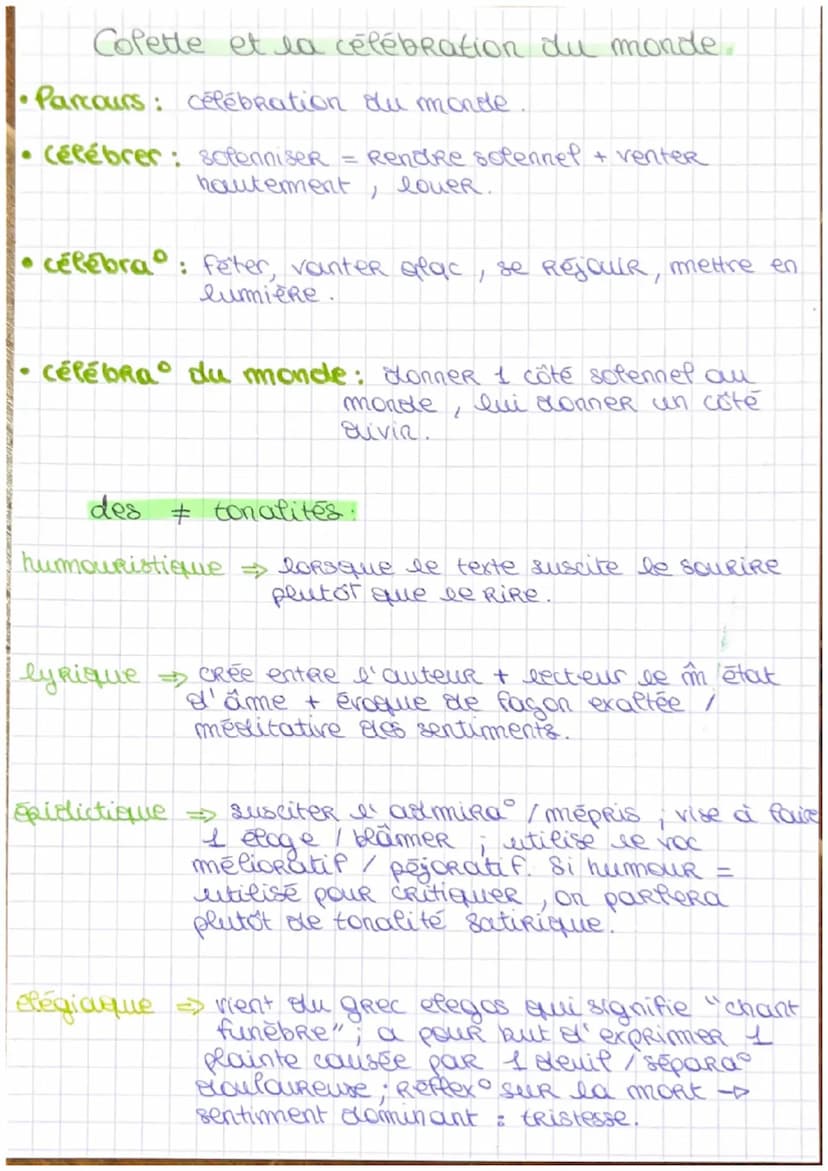 Colette et la célébration du monde.
• Parcours : célébration du monde.
• célébrer : solenniser = rendre solennel + venter
hautement, louer.
• célébra° : fêter, vanter qlqc, se réjouir, mettre en
lumière.
• célébra° du monde : donner 1 côté solennel au
monde, lui donner un côté
divin.
des ≠ tonalités :
humouristique ⇒ lorsque le texte suscite le sourire
plutôt que le rire.
lyrique ⇒ crée entre l'auteur + lecteur le m̂ état
d'âme + évoque de façon exaltée /
méditative des sentiments.
épidictique ⇒ susciter l'admira° / mépris ; vise à faire
1 éloge / blâmer ; utilise le voc
mélioratif / péjoratif. Si humour =
utilisé pour critiquer, on parlera
plutôt de tonalité satirique.
élégiaque ⇒ vient du grec elegos qui signifie "chant
funèbre" ; a pour but d'exprimer 1
plainte causée par 1 deuil / sépara°
douloureuse ; réflex° sur la mort →
sentiment dominant : tristesse.